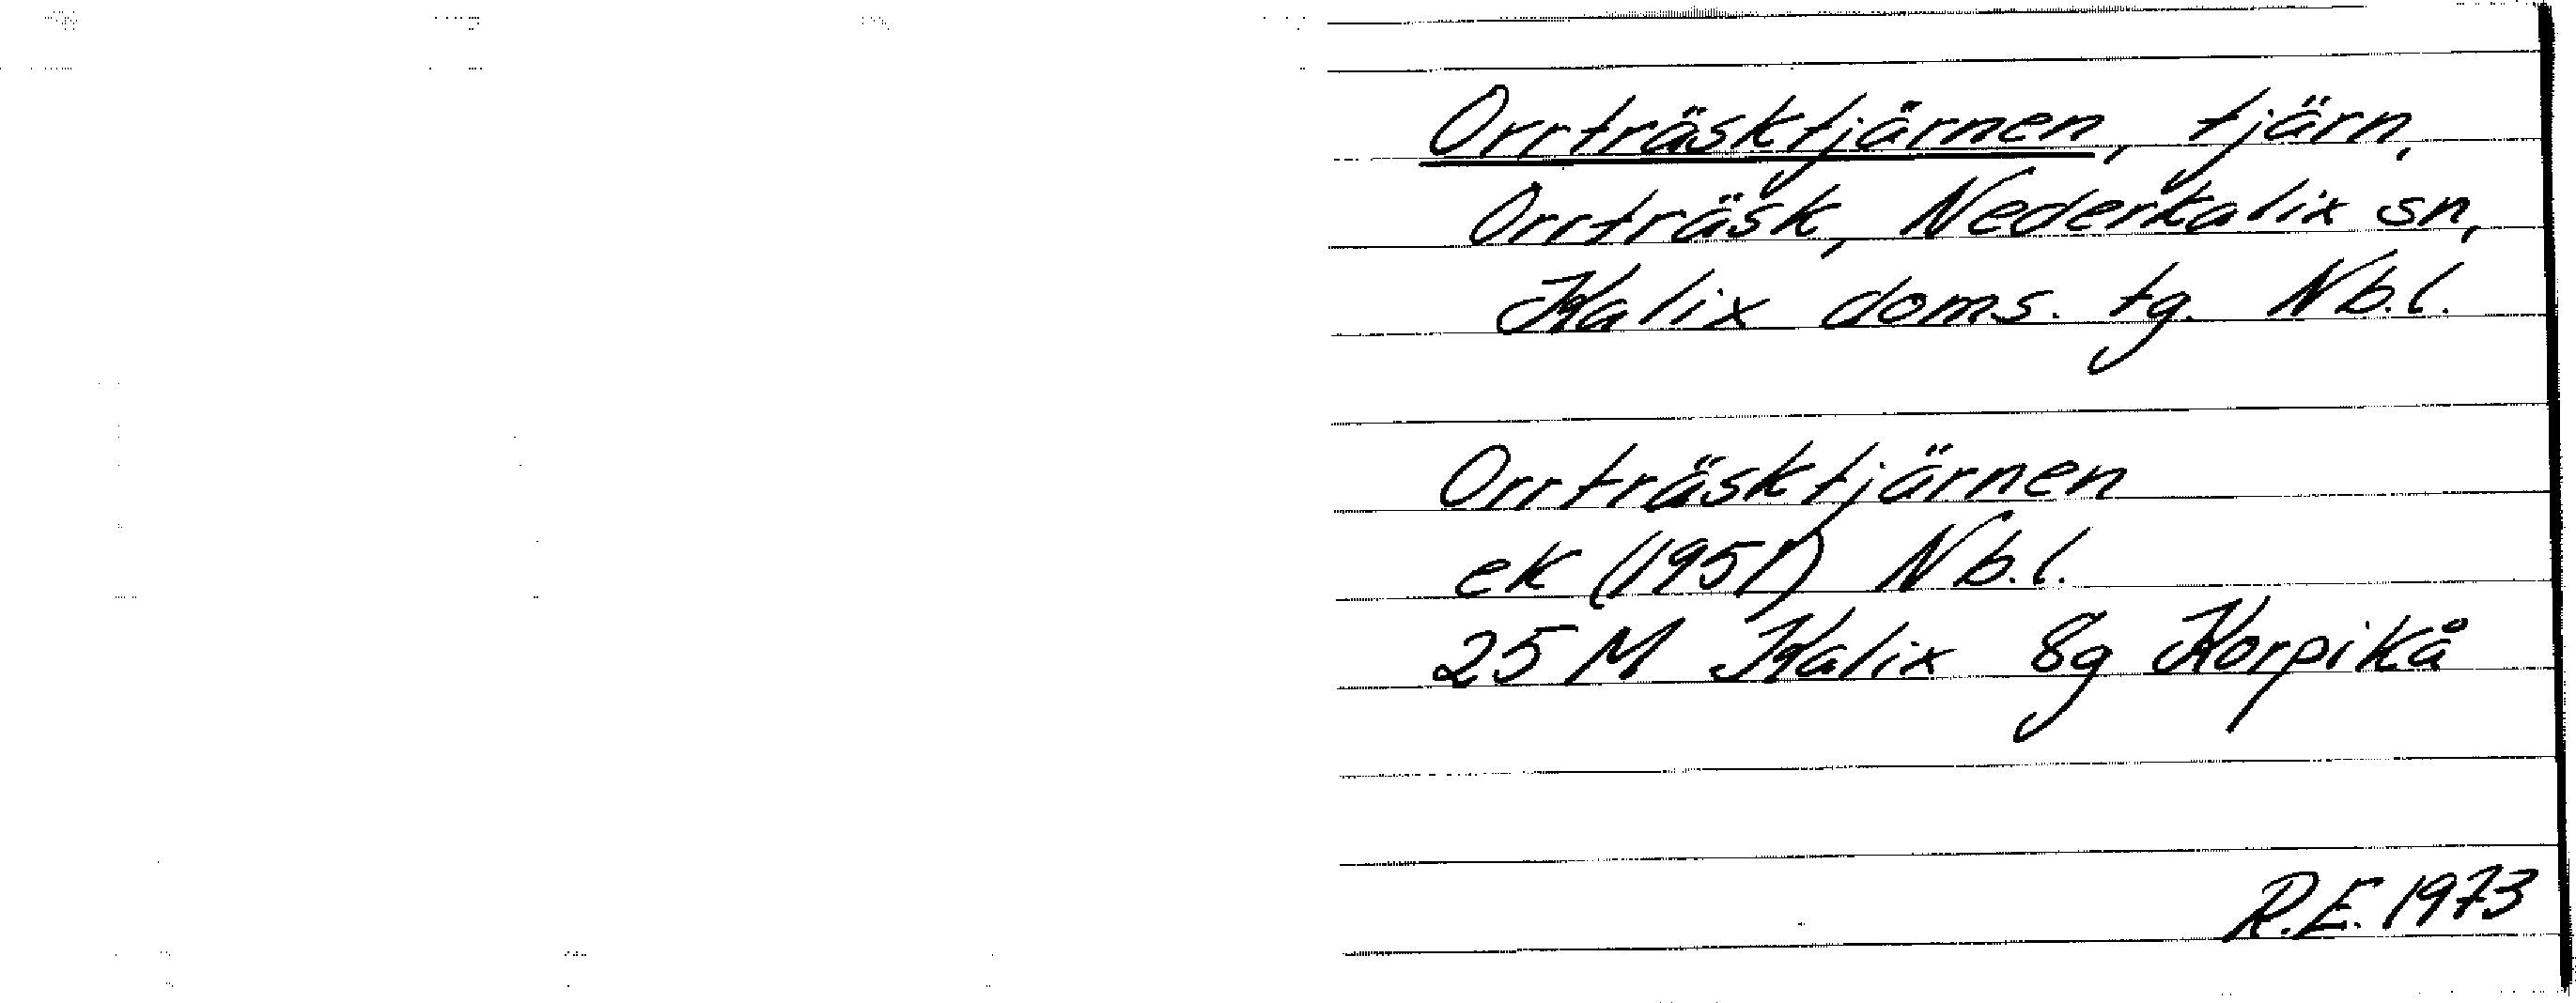 Orrträsktjärnen, tjärn,
Orrträsk, Nederkalix sn,
Kalix doms. tg. Nb.l.
Orrträsktjärnen
ek (1951) Nb.l.
25 M Kalix 8g Korpikå
R.E. 1973